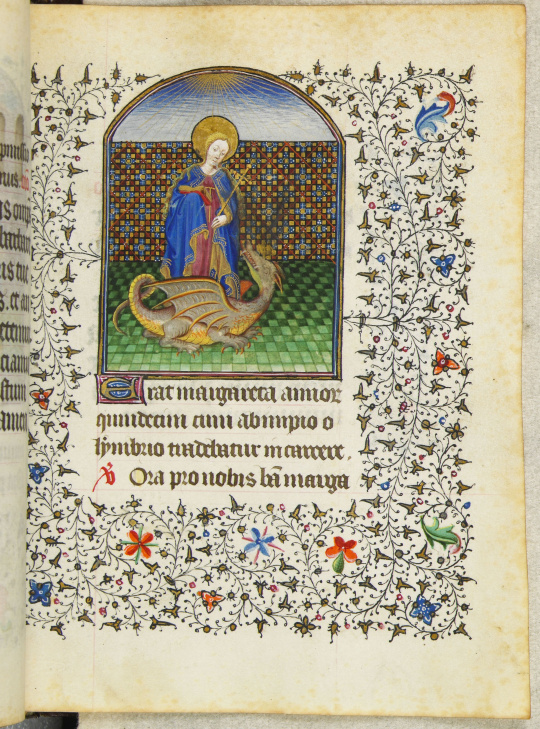 Erat margareta annor
quindecim cum ab impio o
lymbrio tradebatur in carcere.
℣ Ora pro nobis bā marga